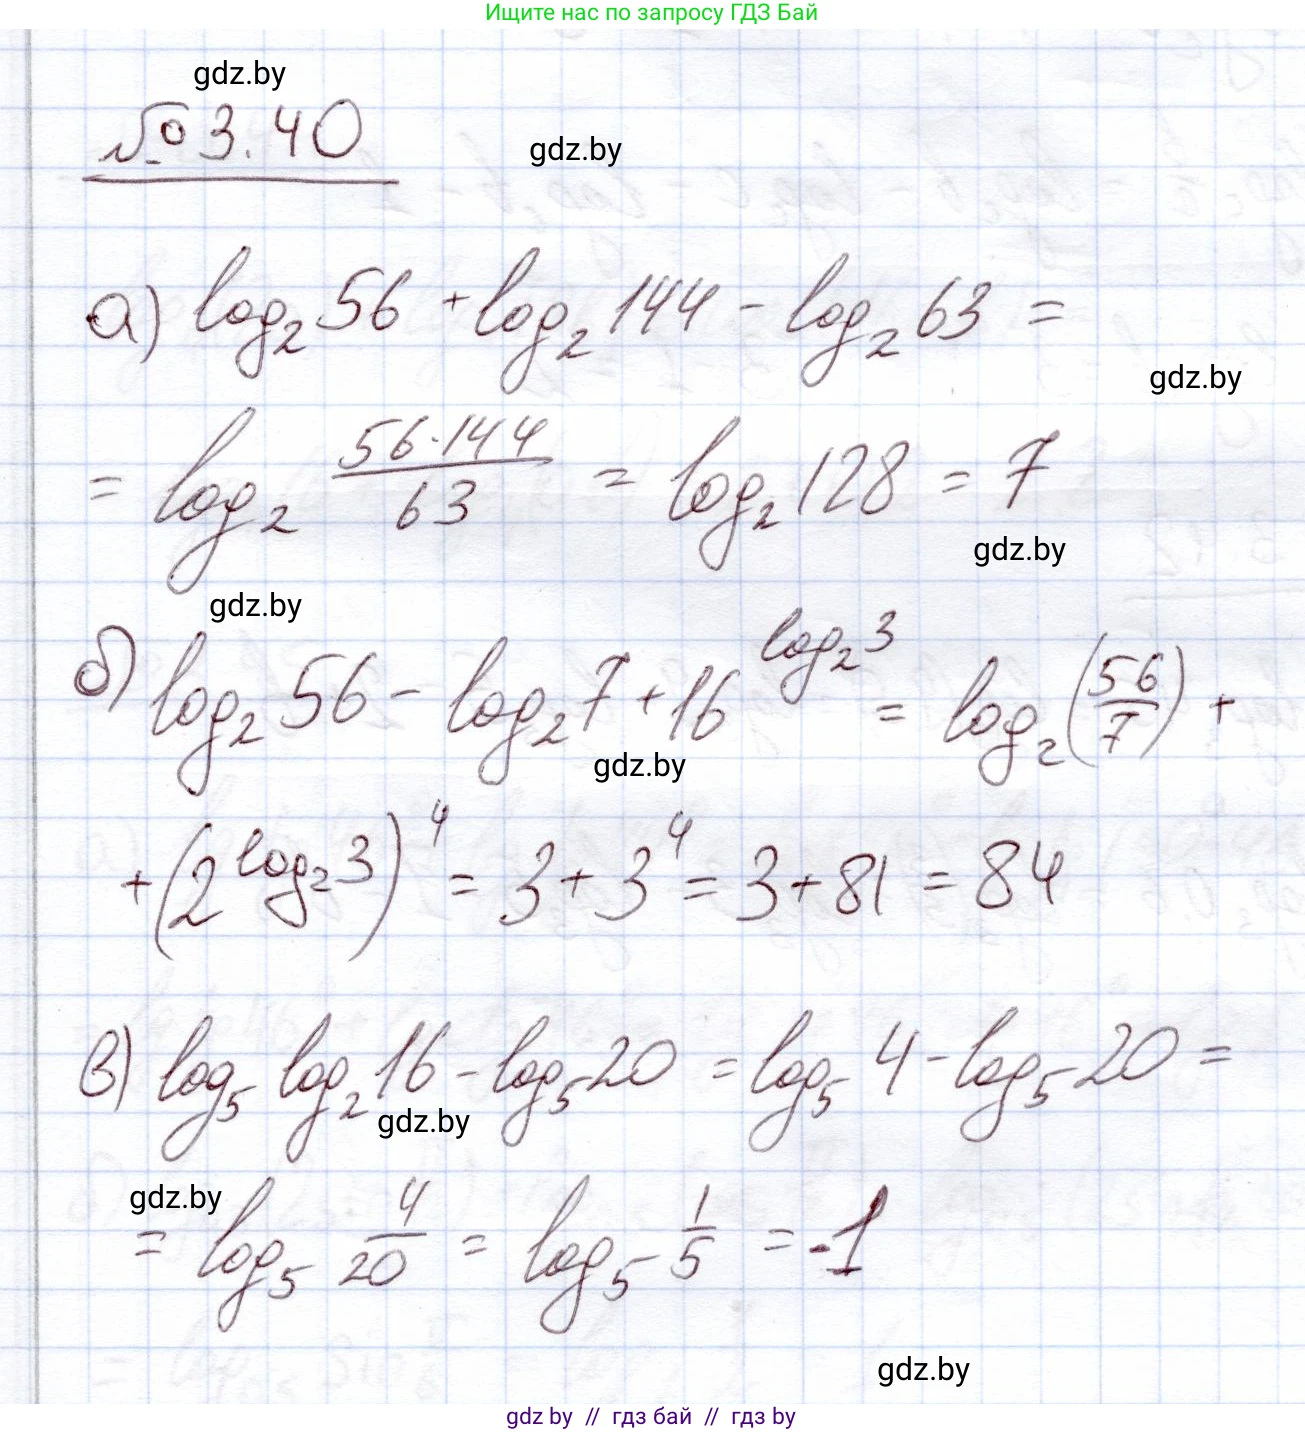 Ищите нас по запросу ГДЗ Бай
gdz.by
№ 3.40
gdz.by
а) log₂ 56 + log₂ 144 - log₂ 63 =
gdz.by
= log₂ (56·144)/63 = log₂ 128 = 7
gdz.by
gdz.by
б) log₂ 56 - log₂ 7 + 16^(log₂ 3) = log₂ (56/7) +
gdz.by
+ (2^(log₂ 3))⁴ = 3 + 3⁴ = 3 + 81 = 84
в) log₅ log₂ 16 - log₅ 20 = log₅ 4 - log₅ 20 =
gdz.by
gdz.by
= log₅ 4/20 = log₅ 1/5 = -1
gdz.by
gdz by // гдз бай // гдз by